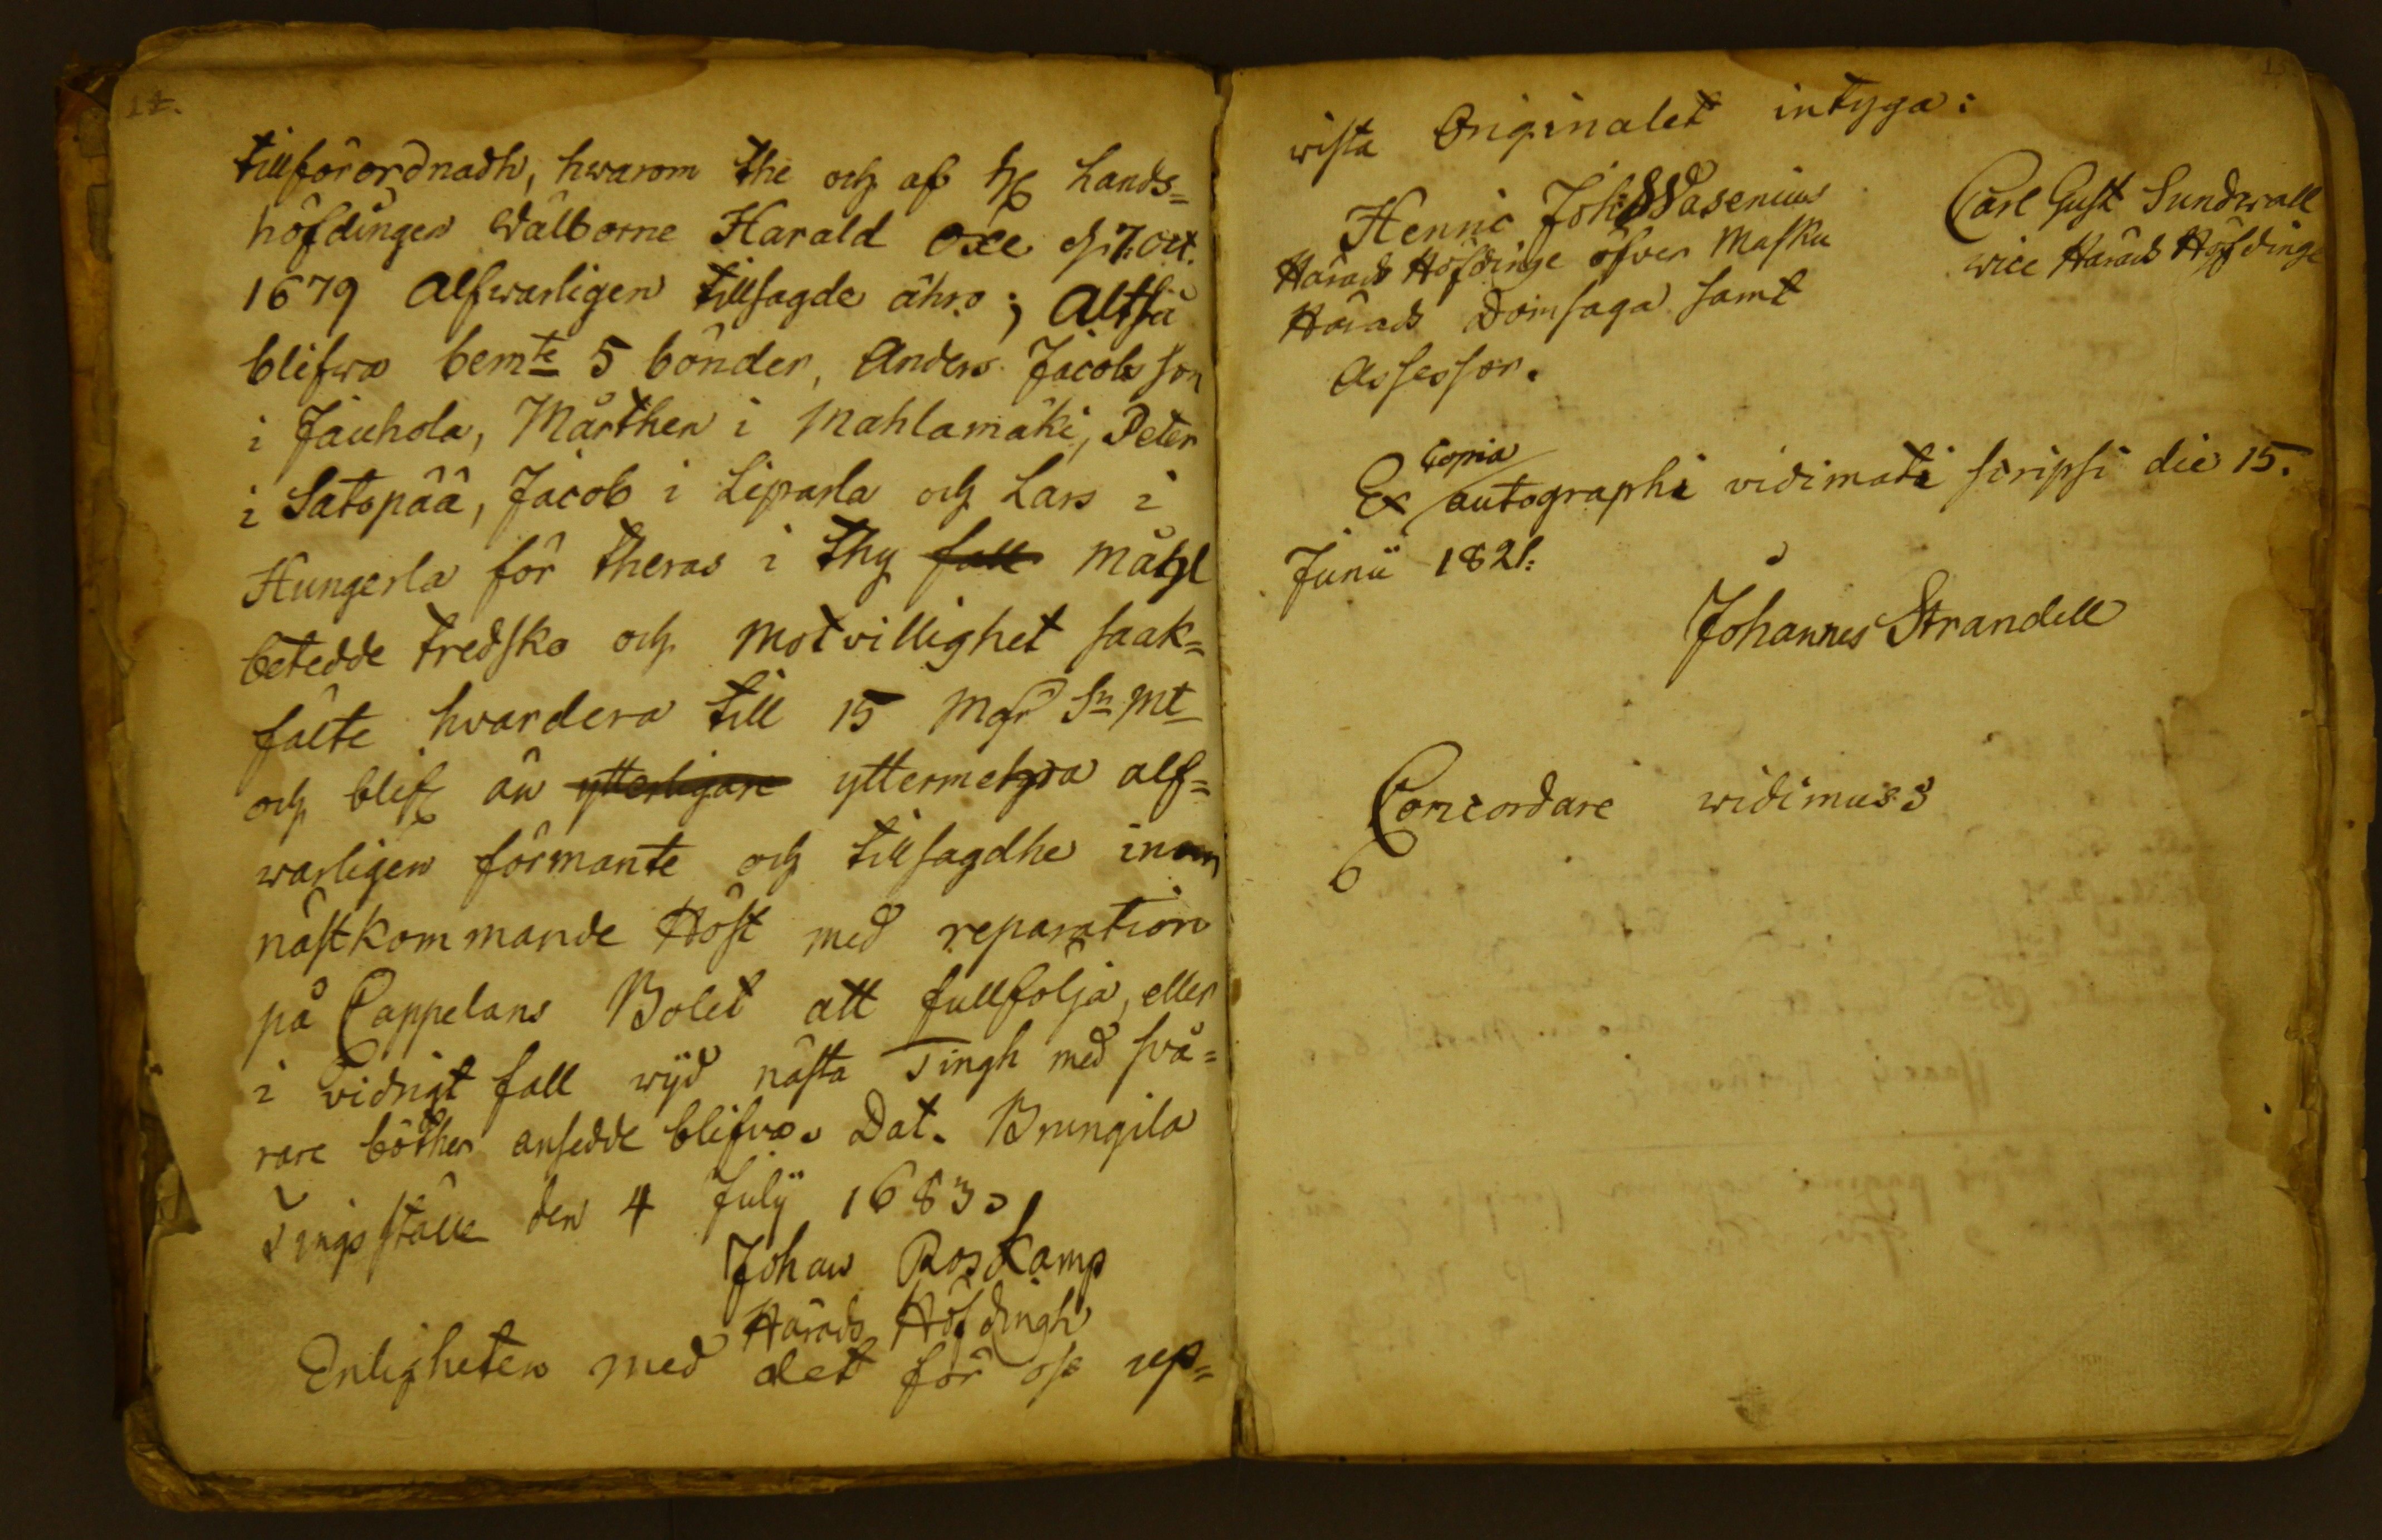 14.
tillförordnadh, hwarom the och af H: Lands=
höfdingen Wälborne Harald Oxe d. 17. Oct.
1679 Alfwarligen tillsagde ähro; Altså
blifwa bemte 5 bönder, Anders Jacobsson
i Jauhola, Mårthen i Mahlamäki, Peter
i Satopää, Jacob i Liparla och Lars i
Hungerla för theras i thy fall måhl
betedde tredsko och motvillighet saak=
fälte hvardera till 15 Mr Sr Mt
och blifw än ytterligare yttermehra alf=
warligen förmante och tillsagdhe innan
nästkommande Höst med reparation
på Cappelans Bolet att fullfölja, eller
i vidrigt fall wijd nästa Tingh med svå=
rare böther ansedde blifva. Dat. Brungila
Tingsställe den 4 Julij 1683.
Johan Roskamp
Härads Höfdingh
Enligheten med det för oss up=
15.
wista Originalet intyga:
Henric Joh. Wasenius
Härads Höfdinge öfver Masku
Härads Domsaga samt
Assessor.
Carl Gust Sundwall
vice Härads Höfdinge
Copia
Ex autographi vidimati scripsi die 15.
Junii 1821.
Johannes Strandell
Concordare widimus: